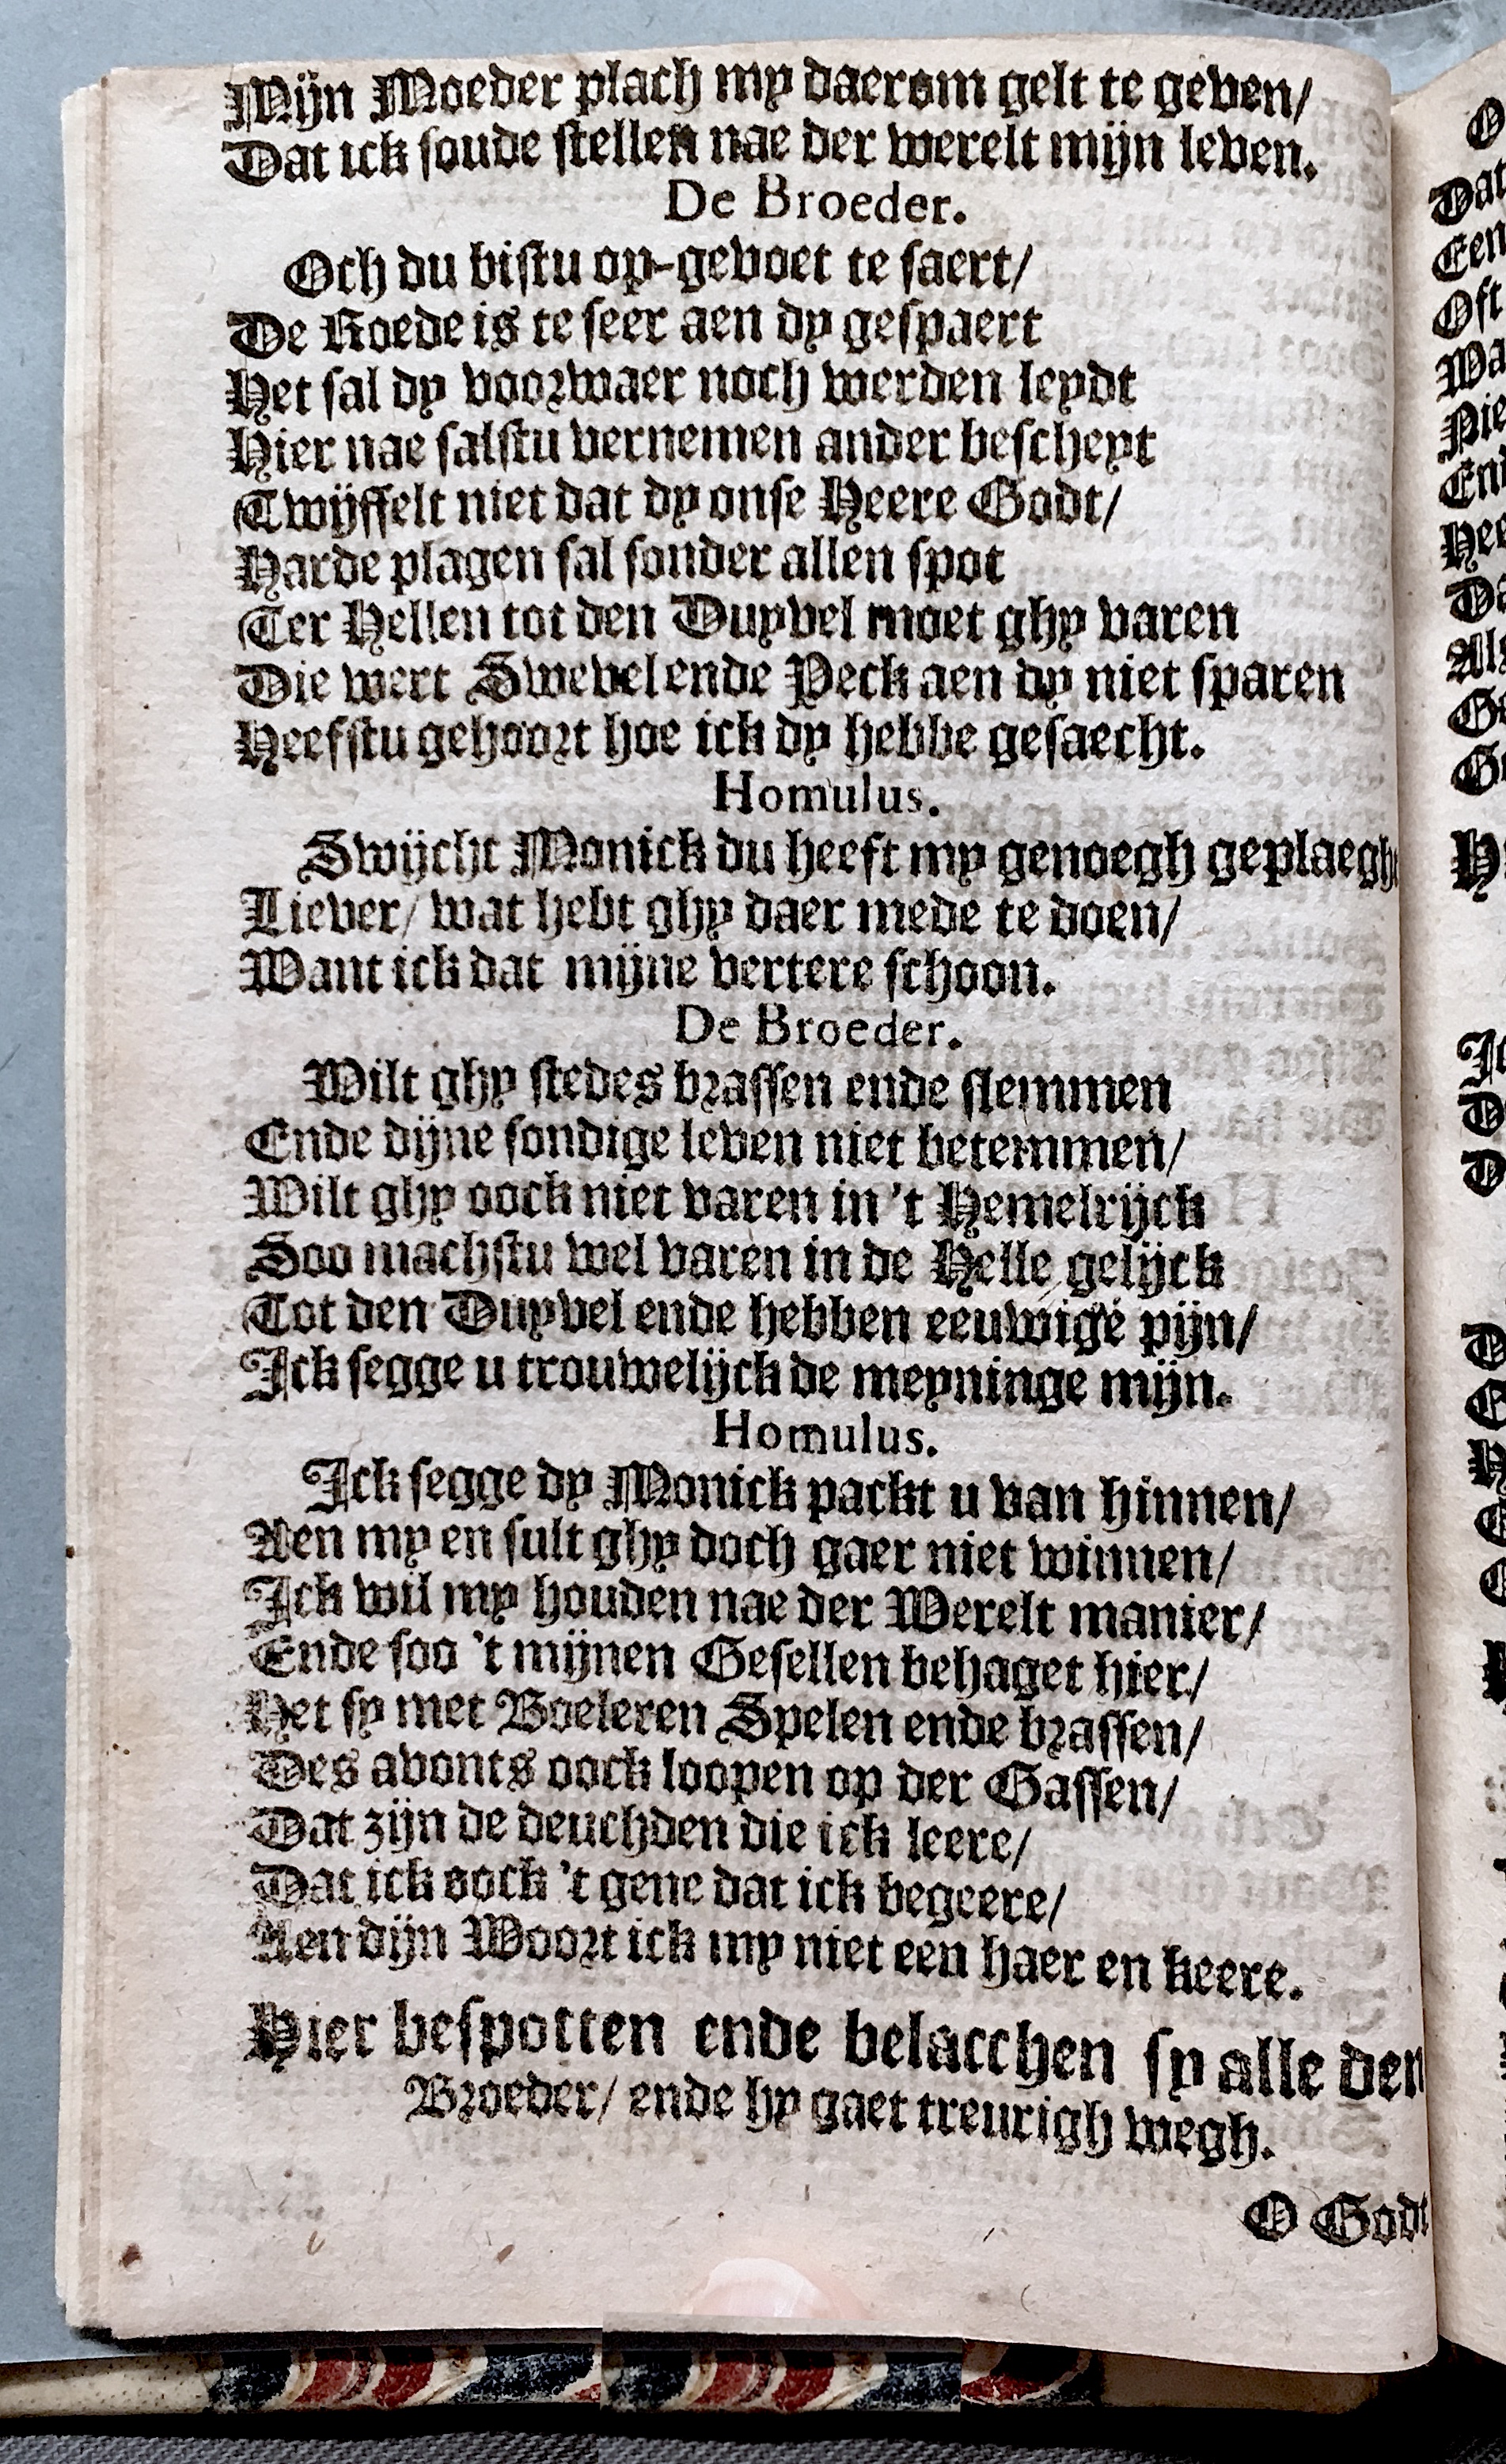 Mijn Moeder plach my daerom gelt te geven/
Dat ick soude stellen nae der werelt mijn leven.
De Broeder.
Och du bistu op-gevoet te saert/
De Roede is te seer aen dy gespaert
Het sal dy voorwaer noch werden leydt
Hier nae salstu vernemen ander bescheyt
Twijffelt niet dat dy onse Heere Godt/
Harde plagen sal sonder allen spot
Ter Hellen tot den Duyvel moet ghy varen
Die wert Swevel ende Peck aen dy niet sparen
Heefstu gehoort hoe ick dy hebbe gesaecht.
Homulus.
Swijcht Monick du heeft my genoegh geplaegh
Liever/ wat hebt ghy daer mede te doen/
Want ick dat mijne vertere schoon.
De Broeder.
Wilt ghy stedes brassen ende slemmen
Ende dijne sondige leven niet betemmen/
Wilt ghy oock niet varen in 't Hemelrijck
Soo machstu wel varen in de Helle gelijck
Tot den Duyvel ende hebben eeuwige pijn/
Ick segge u trouwelijck de meyninge mijn.
Homulus.
Ick segge dy Monick packt u van hinnen/
Aen my en sult ghy doch gaer niet winnen/
Ick wil my houden nae der Werelt manier/
Ende soo 't mijnen Gesellen behaget hier/
Het sy met Boeleren Spelen ende brassen/
Des avonts oock loopen op der Gassen/
Dat zijn de deuchden die ick leere/
Dat ick oock 't gene dat ick begeere/
Aen dijn Woort ick my niet een haer en keere.
Hier bespotten ende belacchen sy alle den
Broeder/ ende hy gaet treurigh wegh.
O Godt